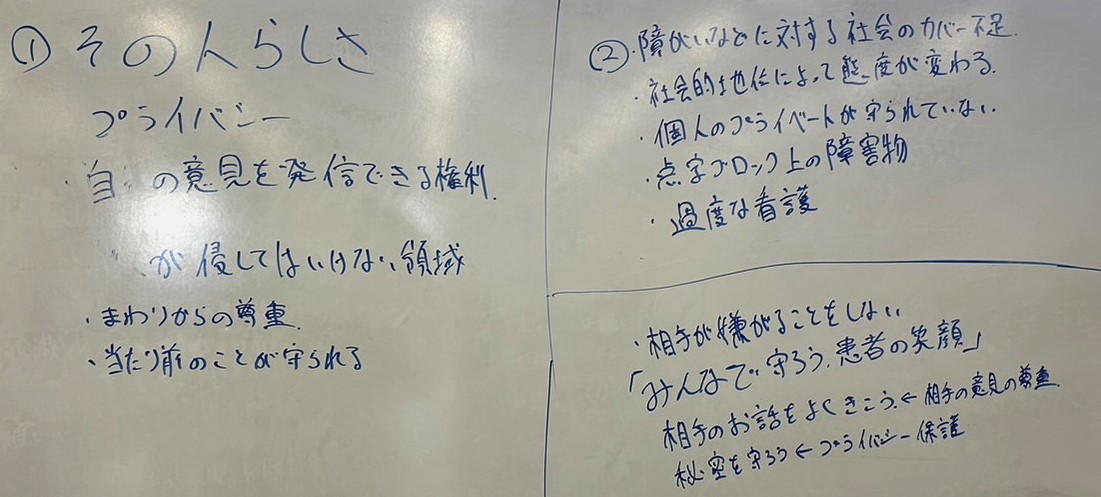 ① その人らしさ
プライバシー
・自 の意見を発信できる権利.
が侵してはいけない領域
・まわりからの尊重.
・当たり前のことが守られる
②・障がいなどに対する社会のカバー不足.
・社会的地位によって態度が変わる.
・個人のプライベートが守られていない.
・点字ブロック上の障害物
・過度な看護
・相手が嫌がることをしない
「みんなで守ろう.患者の笑顔」
相手のお話をよくきこう.←相手の意見の尊重.
秘密を守ろう←プライバシー保護